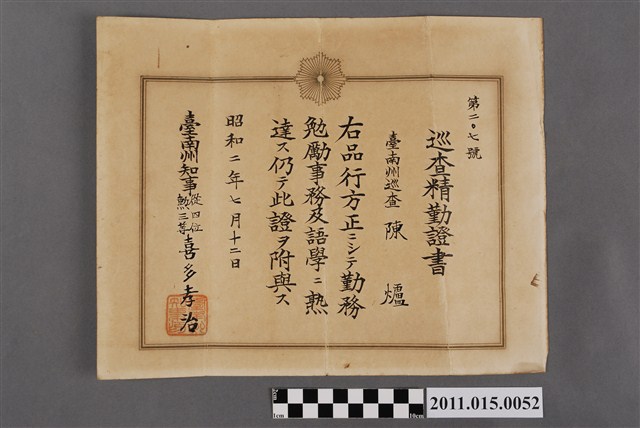 第二〇七號
巡查精勤證書
臺南州巡查 陳爐
右品行方正ニシテ勤務
勉勵事務及語學ニ熟
達ス仍テ此證ヲ附與ス
昭和二年七月十二日
臺南州知事從四位勲三等喜多孝治
2cm
1cm
10cm
2011.015.0052